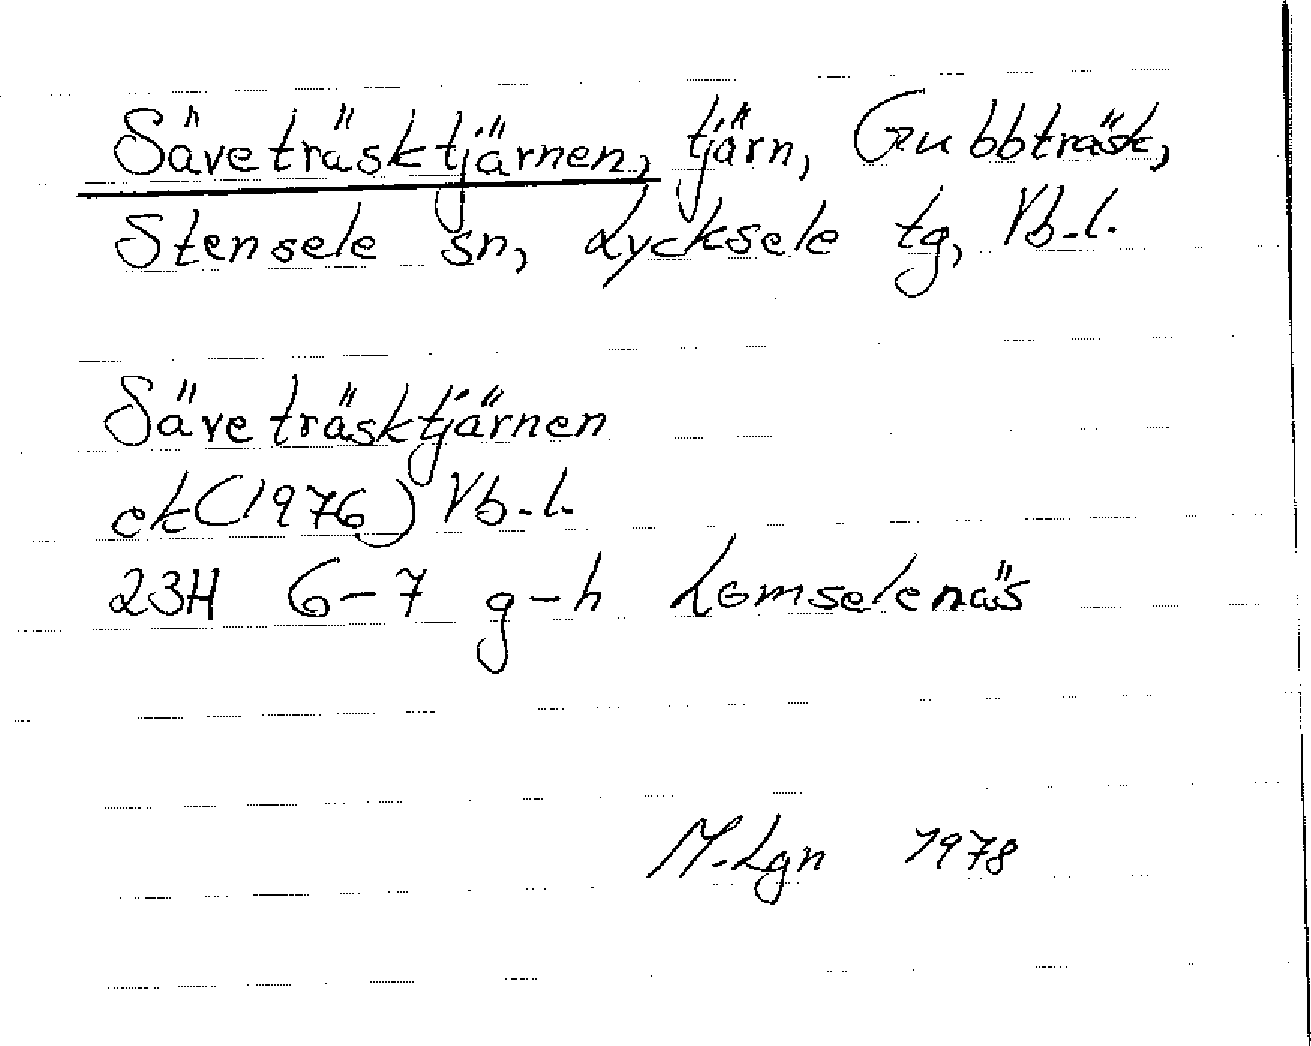 Säveträsktjärnen, tjärn, Gubbträsk,
Stensele sn, Lycksele tg, Vb.l.
Säveträsktjärnen
ek(1976) Vb.l.
23H 6-7 g-h Lomselenäs
M.Lgn 1978